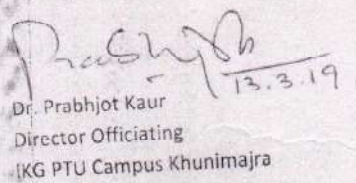 Prabhjot
13.3.19
Dr. Prabhjot Kaur
Director Officiating
IKG PTU Campus Khunimajra